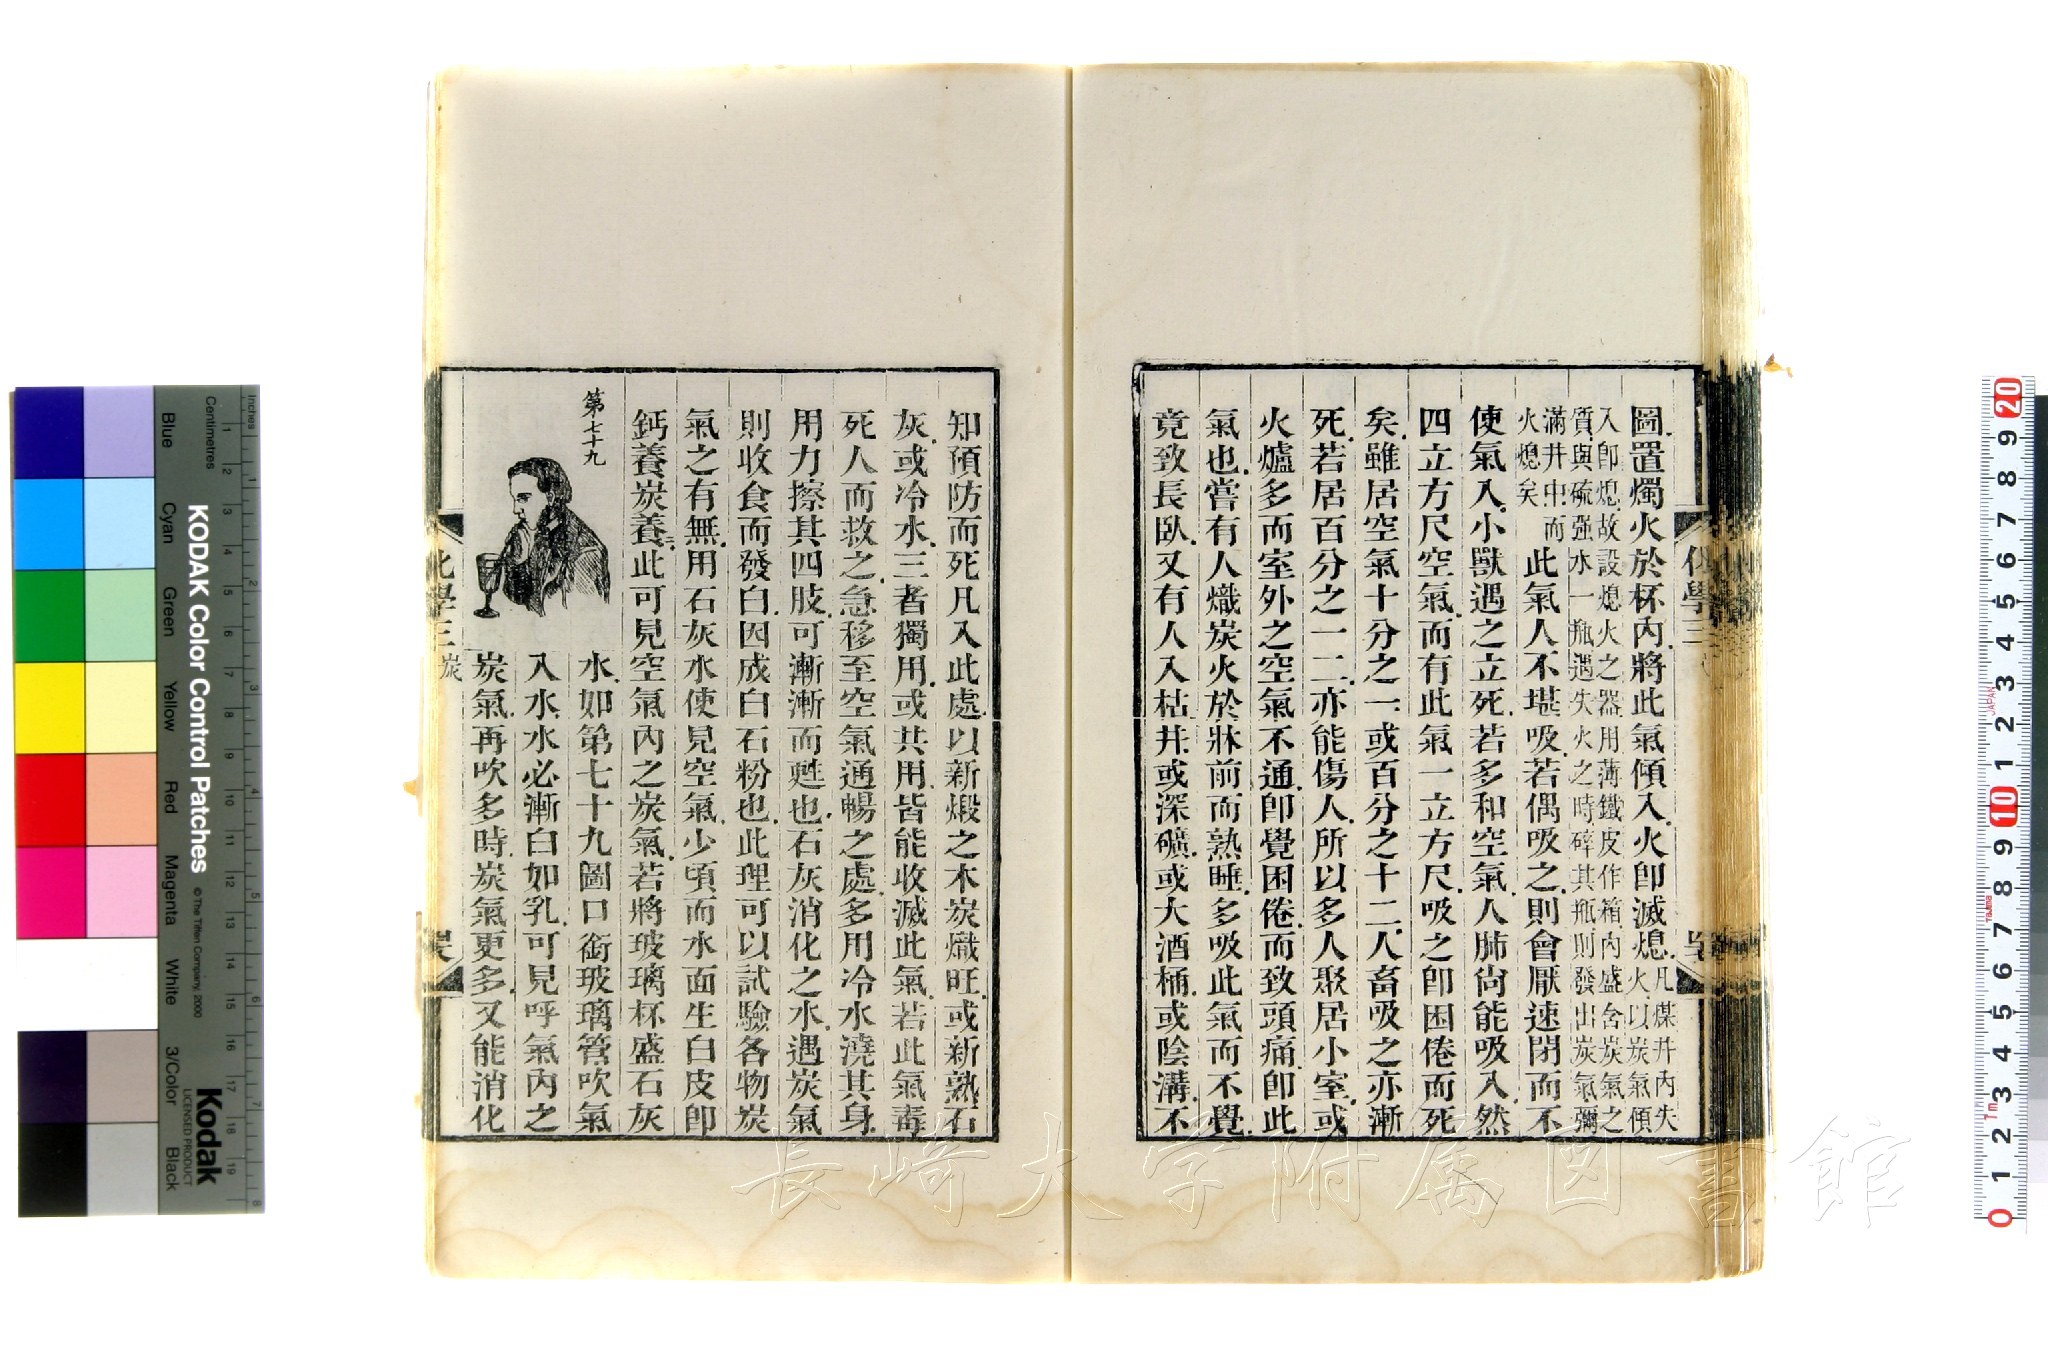 圖.置燭火於杯內.將此氣傾入.火卽滅熄.凡煤井內失火.以炭氣傾
入卽熄.故設熄火之器.用薄鐵皮作箱.內盛含炭氣之
質.與硫强水一瓶.遇失火之時.碎其瓶.則發出炭氣.彌
滿井中.而火熄矣 此氣人不堪吸.若偶吸之.則會厭速閉而不
使氣入.小獸遇之立死.若多和空氣.人肺尙能吸入.然
四立方尺空氣.而有此氣一立方尺.吸之卽困倦而死
矣.雖居空氣十分之一.或百分之十二.人畜吸之亦漸
死.若居百分之一二.亦能傷人.所以多人聚居小室.或
火爐多而室外之空氣不通.卽覺困倦.而致頭痛.卽此
氣也.嘗有人熾炭火於牀前而熟睡.多吸此氣而不覺.
竟致長臥.又有人入枯井.或深礦.或大酒桶.或陰溝.不
知預防而死.凡入此處.以新煅之木炭熾旺.或新熟石
灰.或冷水.三者獨用.或共用.皆能收滅此氣.若此氣毒
死人而救之.急移至空氣通暢之處.多用冷水澆其身.
用力擦其四肢.可漸漸而甦也.石灰消化之水.遇炭氣
則收食而發白.因成白石粉也.此理可以試驗各物炭
氣之有無.用石灰水使見空氣.少頃而水面生白皮.卽
鈣養炭養二.此可見空氣內之炭氣.若將玻璃杯盛石灰
第七十九
水.如第七十九圖.口銜玻璃管.吹氣
入水.水必漸白如乳.可見呼氣內之
炭氣.再吹多時.炭氣更多.又能消化
化學三
化學三 炭
長崎大学附属図書館
KODAK Color Control Patches
© The Tiffen Company, 2000
Kodak
LICENSED PRODUCT
Inches
Centimetres
Blue
Cyan
Green
Yellow
Red
Magenta
White
3/Color
Black
1 2 3 4 5 6 7 8 9 10 11 12 13 14 15 16 17 18 19
1 2 3 4 5 6 7 8
20 9 8 7 6 5 4 3 2 1 10 9 8 7 6 5 4 3 2 1 0
JAPAN